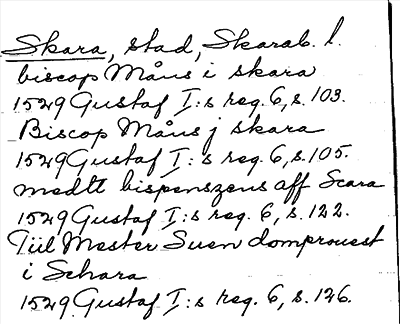 Skara, stad, Skarab. l.
biscop Måns i skara
1529 Gustaf I:s reg. 6, s. 103.
Biscop Måns j skara
1529 Gustaf I:s reg. 6, s. 105.
medtt bispenszens aff Scara
1529 Gustaf I:s reg. 6, s. 122.
Tiil Mester Suen domprouest
i Schara
1529 Gustaf I:s reg. 6, s. 126.